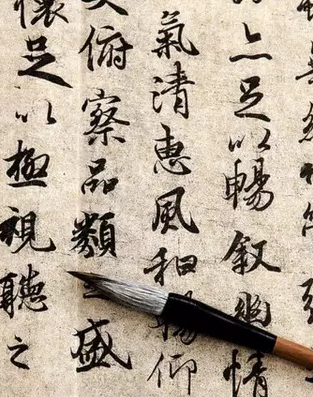 亦足以暢敘幽情
氣清惠風和暢仰
俯察品類之盛
懷足以極視聽之